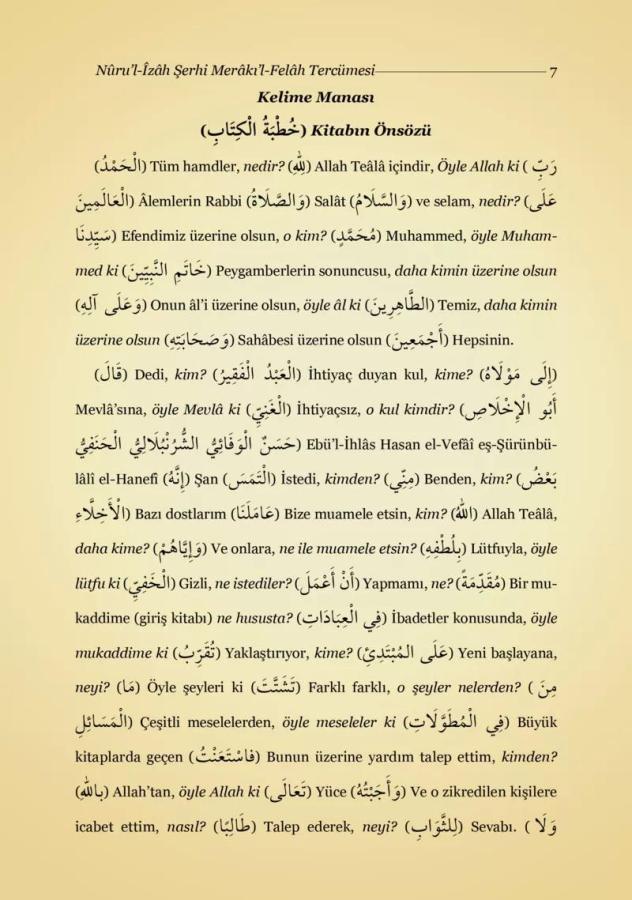 Nûru’l-Îzâh Şerhi Merâkı’l-Felâh Tercümesi 7
Kelime Manası
(خُطْبَةُ الْكِتَابِ) Kitabın Önsözü
(الْحَمْدُ) Tüm hamdler, nedir? (لِلّٰهِ) Allah Teâlâ içindir, Öyle Allah ki (رَبِّ
الْعَالَمِينَ) Âlemlerin Rabbi (وَالصَّلَاةُ) Salât (وَالسَّلَامُ) ve selam, nedir? (عَلَى
سَيِّدِنَا) Efendimiz üzerine olsun, o kim? (مُحَمَّدٍ) Muhammed, öyle Muham-
med ki (خَاتَمِ النَّبِيِّينَ) Peygamberlerin sonuncusu, daha kimin üzerine olsun
(وَعَلَى آلِهِ) Onun âl’i üzerine olsun, öyle âl ki (الطَّاهِرِينَ) Temiz, daha kimin
üzerine olsun (وَصَحَابَتِهِ) Sahâbesi üzerine olsun (أَجْمَعِينَ) Hepsinin.
(قَالَ) Dedi, kim? (الْعَبْدُ الْفَقِيرُ) İhtiyaç duyan kul, kime? (إِلَى مَوْلَاهُ)
Mevlâ’sına, öyle Mevlâ ki (الْغَنِيِّ) İhtiyaçsız, o kul kimdir? (أَبُو الْإِخْلَاصِ
حَسَنٌ الْوَفَائِيُّ الشُّرُنْبُلَالِيُّ الْحَنَفِيُّ) Ebü’l-İhlâs Hasan el-Vefâî eş-Şürünbü-
lâlî el-Hanefî (إِنَّهُ) Şan (الْتَمَسَ) İstedi, kimden? (مِنِّي) Benden, kim? (بَعْضُ
الْأَخِلَّاءِ) Bazı dostlarım (عَامَلَنَا) Bize muamele etsin, kim? (اللهُ) Allah Teâlâ,
daha kime? (وَإِيَّاهُمْ) Ve onlara, ne ile muamele etsin? (بِلُطْفِهِ) Lütfuyla, öyle
lütfu ki (الْخَفِيِّ) Gizli, ne istediler? (أَنْ أَعْمَلَ) Yapmamı, ne? (مُقَدِّمَةً) Bir mu-
kaddime (giriş kitabı) ne hususta? (فِي الْعِبَادَاتِ) İbadetler konusunda, öyle
mukaddime ki (تُقَرِّبُ) Yaklaştırıyor, kime? (عَلَى الْمُبْتَدِئِ) Yeni başlayana,
neyi? (مَا) Öyle şeyleri ki (تَشَتَّتَ) Farklı farklı, o şeyler nelerden? (مِنَ
الْمَسَائِلِ) Çeşitli meselelerden, öyle meseleler ki (فِي الْمُطَوَّلَاتِ) Büyük
kitaplarda geçen (فَاسْتَعَنْتُ) Bunun üzerine yardım talep ettim, kimden?
(بِاللهِ) Allah’tan, öyle Allah ki (تَعَالَى) Yüce (وَأَجَبْتُهُ) Ve o zikredilen kişilere
icabet ettim, nasıl? (طَالِبًا) Talep ederek, neyi? (لِلثَّوَابِ) Sevabı. (وَلَا